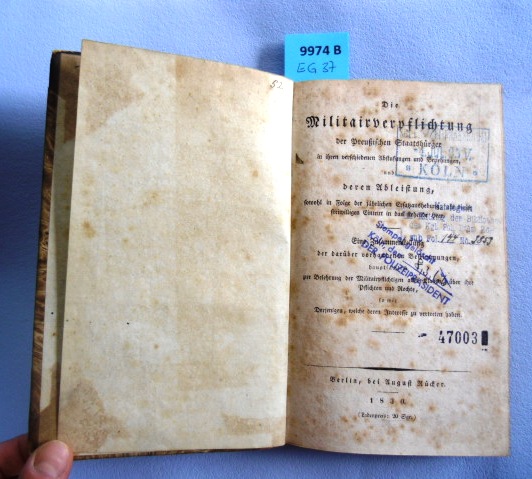 9974 B
EG 37
52
Die
Militairverpflichtung
der Preußischen Staatsbürger
in ihren verschiedenen Abstufungen und Beziehungen,
und
deren Ableistung,
sowohl in Folge der jährlichen
freiwilligen Eintritt in das stehende Heer.
KÖLN
Eine
der darüber
zur Belehrung der Militairpflichtigen über ihre
Pflichten und Rechte,
so wie
Derjenigen, welche deren Interesse zu vertreten haben.
DER POLIZEIPRÄSIDENT
47003
Berlin, bei August Rücker.
1830.
(Ladenpreis: 20 Sgr.)